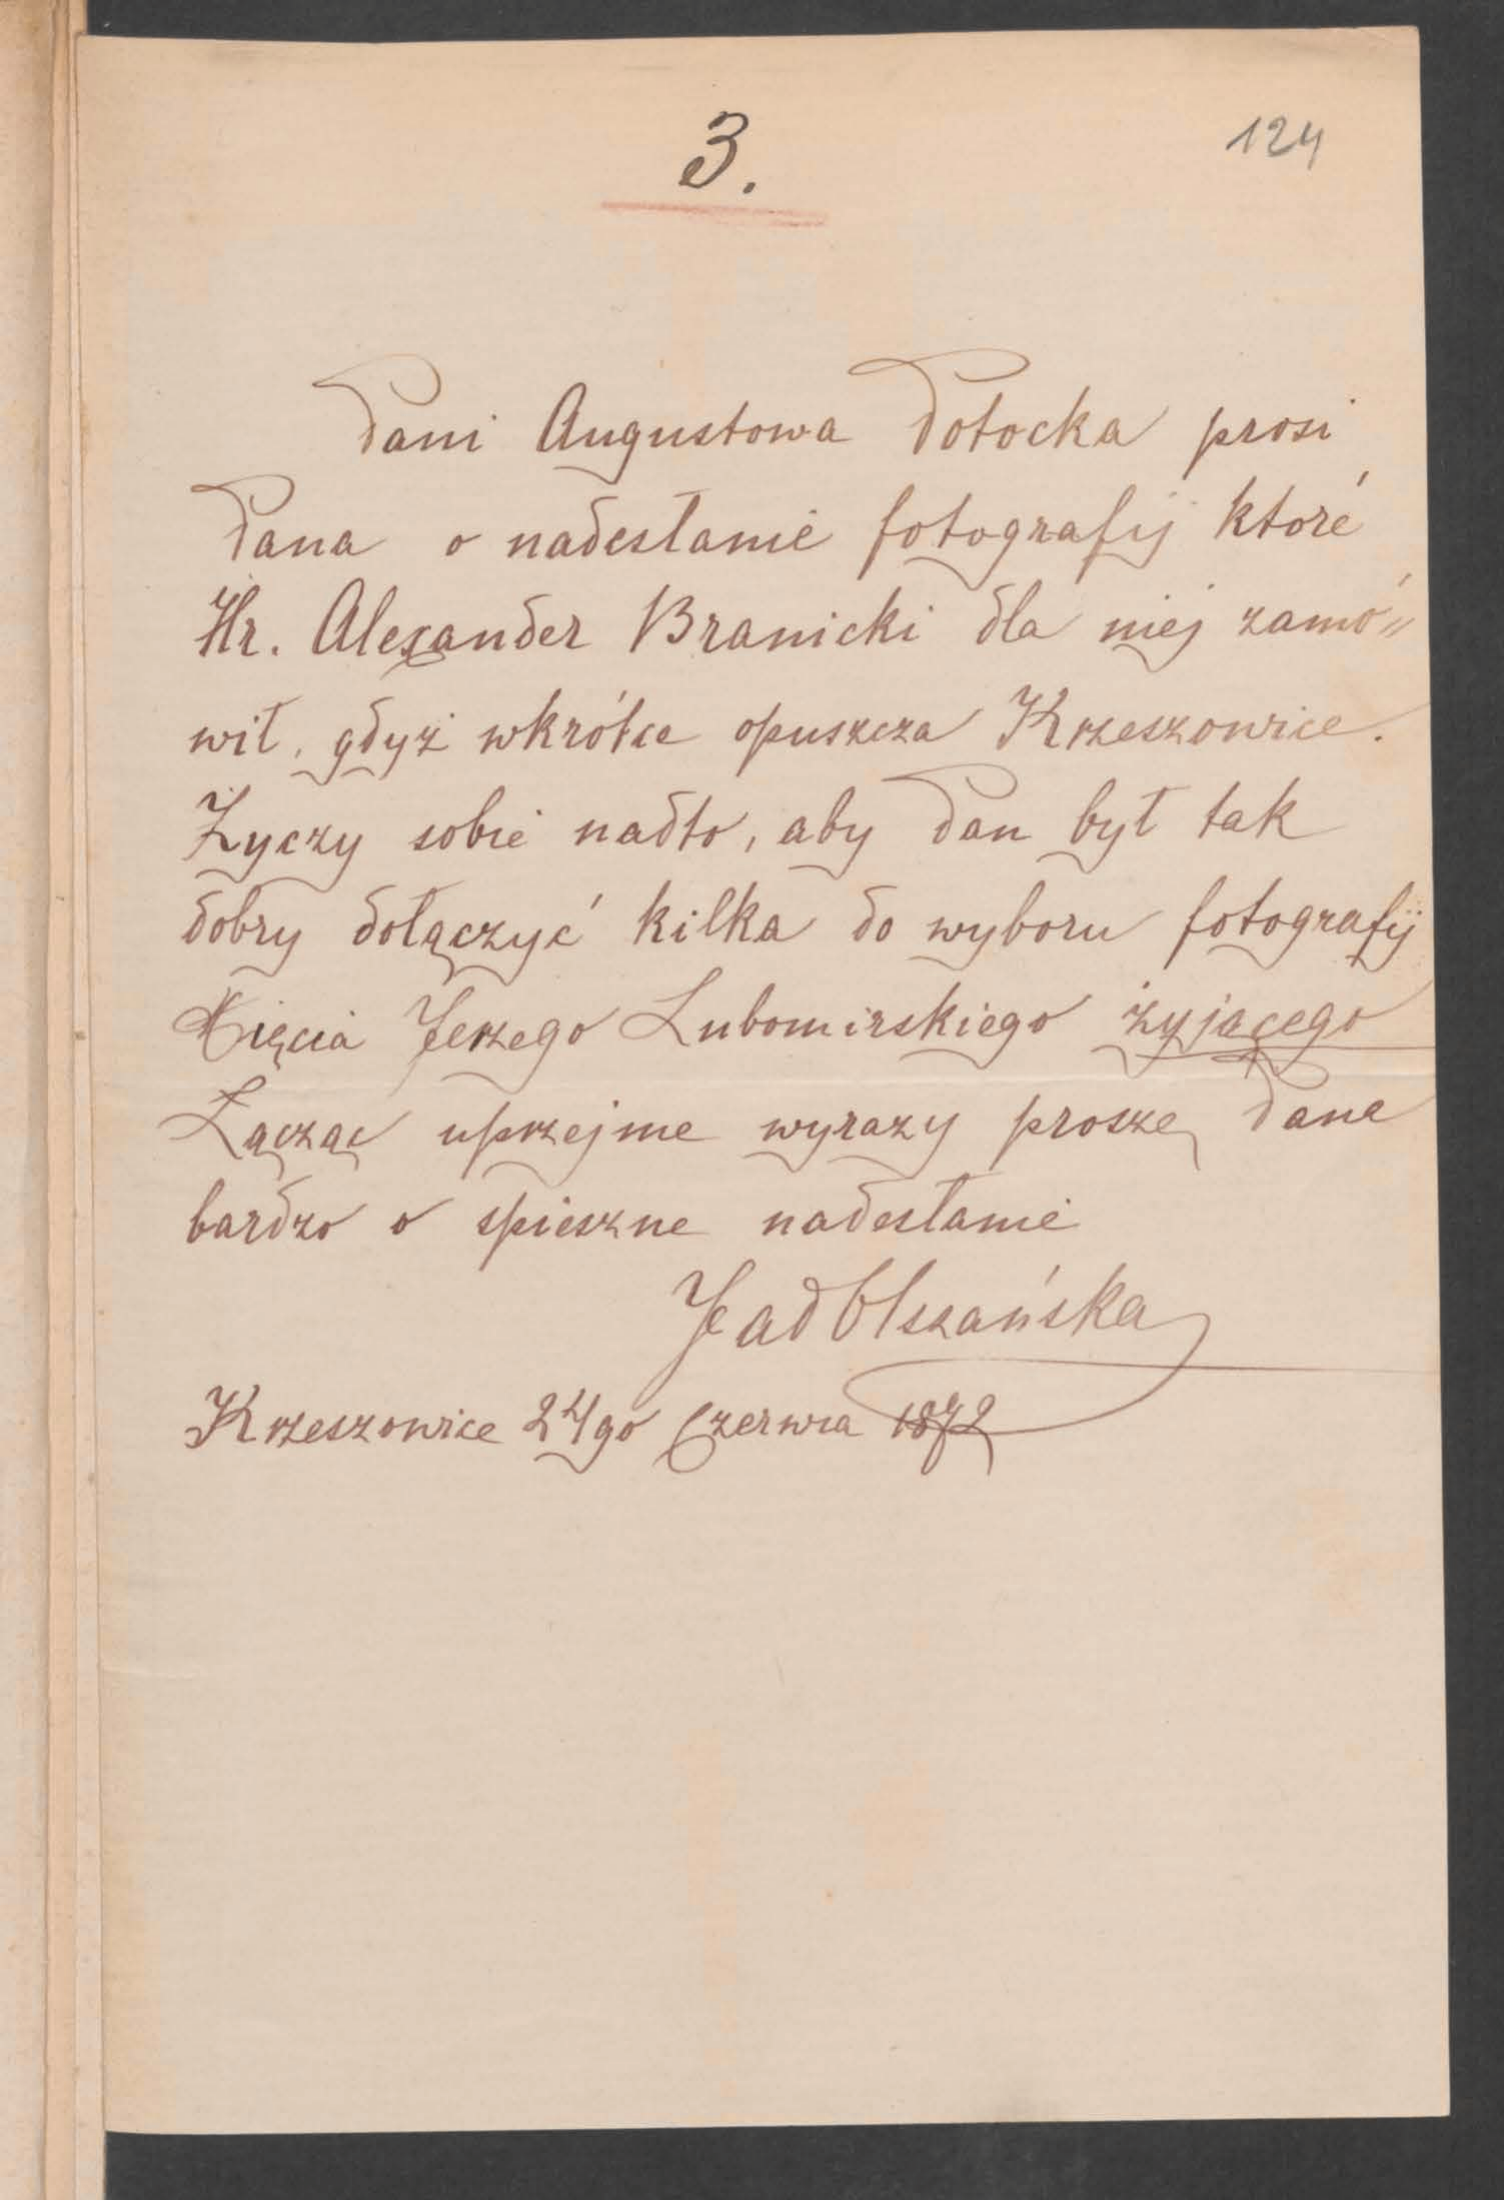 3.
124
Pani Augustowa Potocka prosi
Pana o nadesłanie fotografij ktoré
Hr. Alexander Branicki dla niej zamó„
wił, gdyż wkrótce opuszcza Krzeszowice.
Życzy sobie nadto, aby Pan był tak
dobry dołączyć kilka do wyboru fotografij
Xięcia Jerzego Lubomirskiego żyjącego
Łącząc uprzejme wyrazy proszę Pana
bardzo o spieszne nadesłanie
Jad Olszańska
Krzeszowice 24go Czerwca 1872